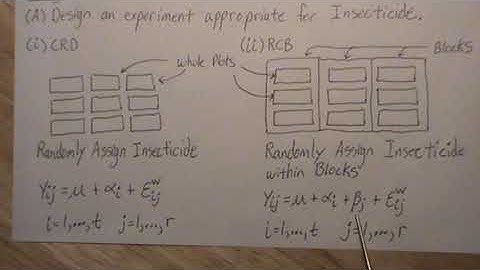 (A) Design an experiment appropriate for Insecticide.
(i) CRD
whole Plots
Randomly Assign Insecticide
Yij = μ + αi + εij^w
i=1,...,t j=1,...,r
(ii) RCB
Blocks
Randomly Assign Insecticide
within Blocks
Yij = μ + αi + βj + εij^w
i=1,...,t j=1,...,r